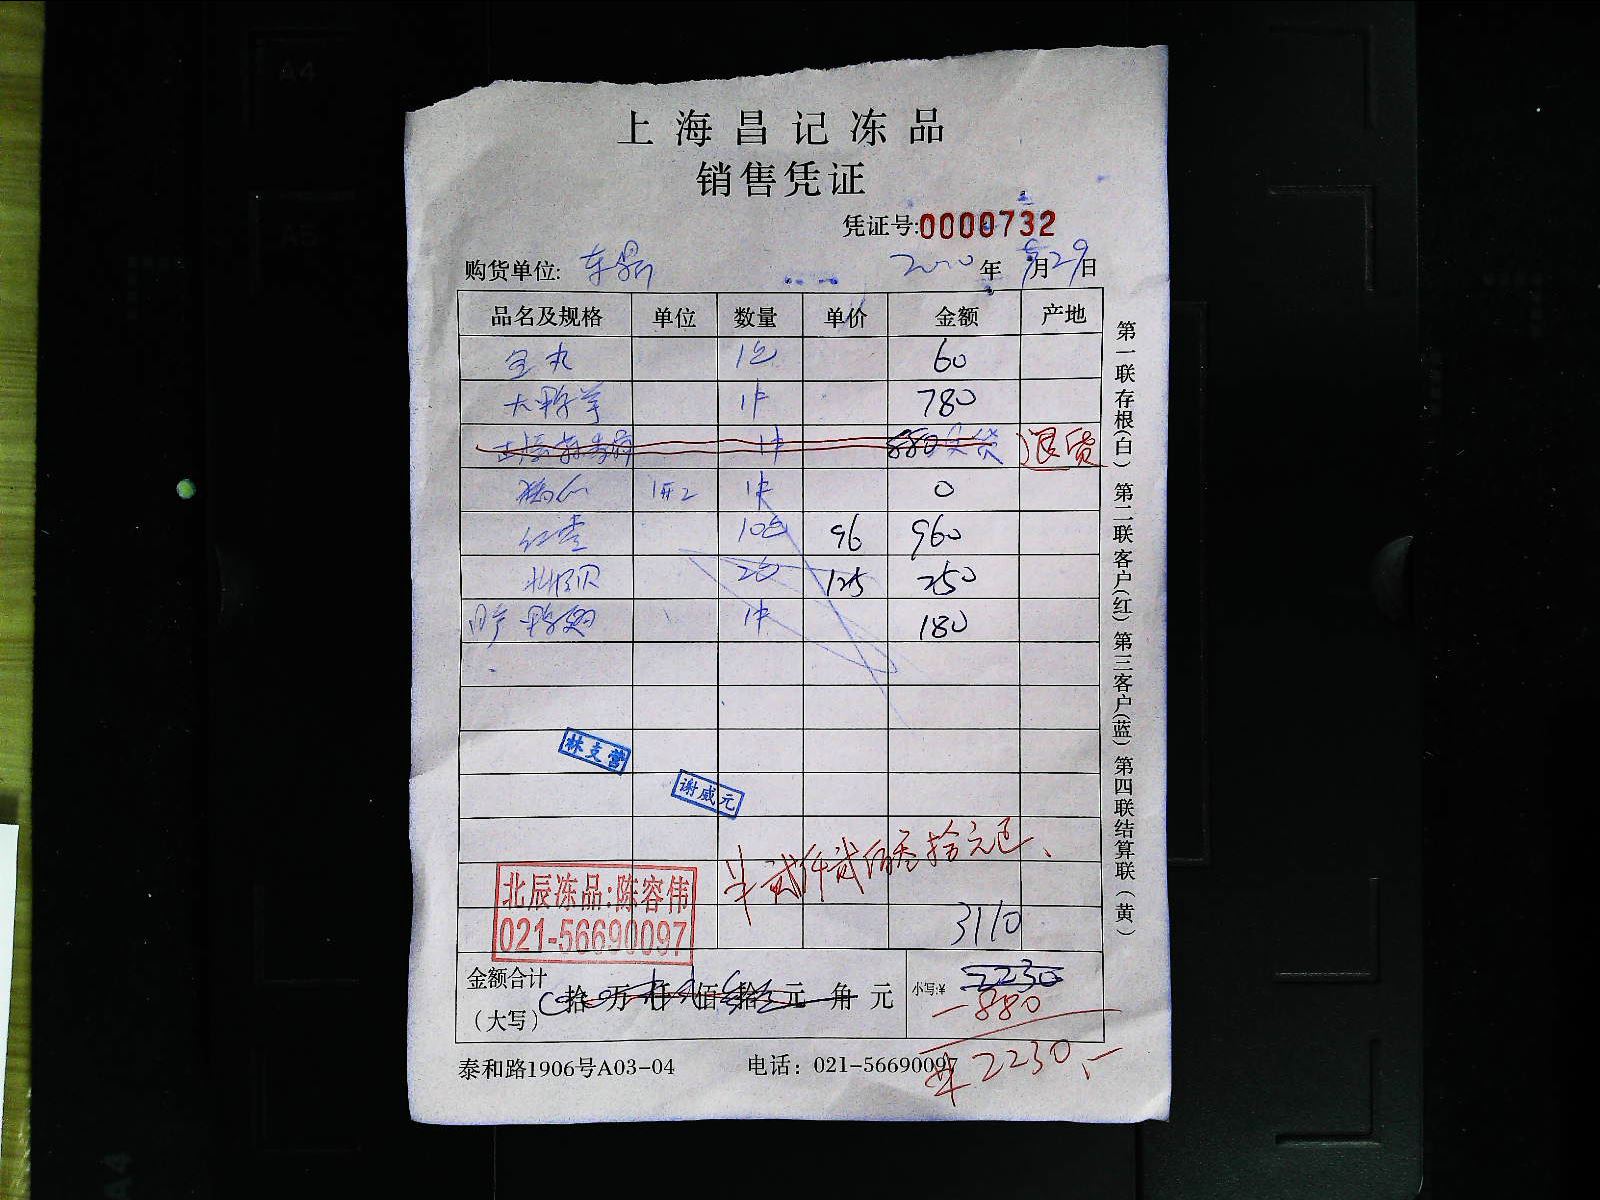 上海昌记冻品
销售凭证
凭证号:0000732
购货单位: 东 年 月29日
品名及规格 单位 数量 单价 金额 产地
丸 1包 60
大 1件 780
1件 880 货 退货
1件 0
红 10包 96 960
北 贝 2包 125 250
鸭翅 1件 180
林支营
谢威元
贰仟贰佰叁拾元正、
北辰冻品:陈容伟
021-56690097
3110
金额合计
(大写) 拾 万 仟 佰 拾 元 角 元 小写:¥ 2230
-880
¥2230.-
泰和路1906号A03-04 电话: 021-56690097
第一联存根(白) 第二联客户(红) 第三客户(蓝) 第四联结算联(黄)